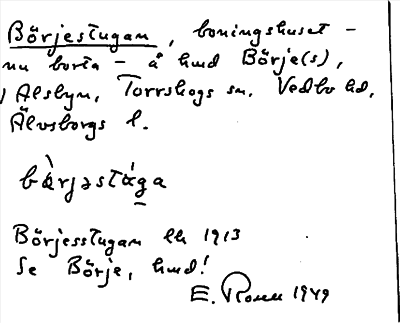 Börjestugan, boningshuset –
nu borta – å hmd Börje(s),
i Alsbyn, Torrskogs sn. Vedbo hd,
Älvsborgs l.
bärjəståga
Börjesstugan lk 1913
Se Börje, hmd!
E. Rosell 1949